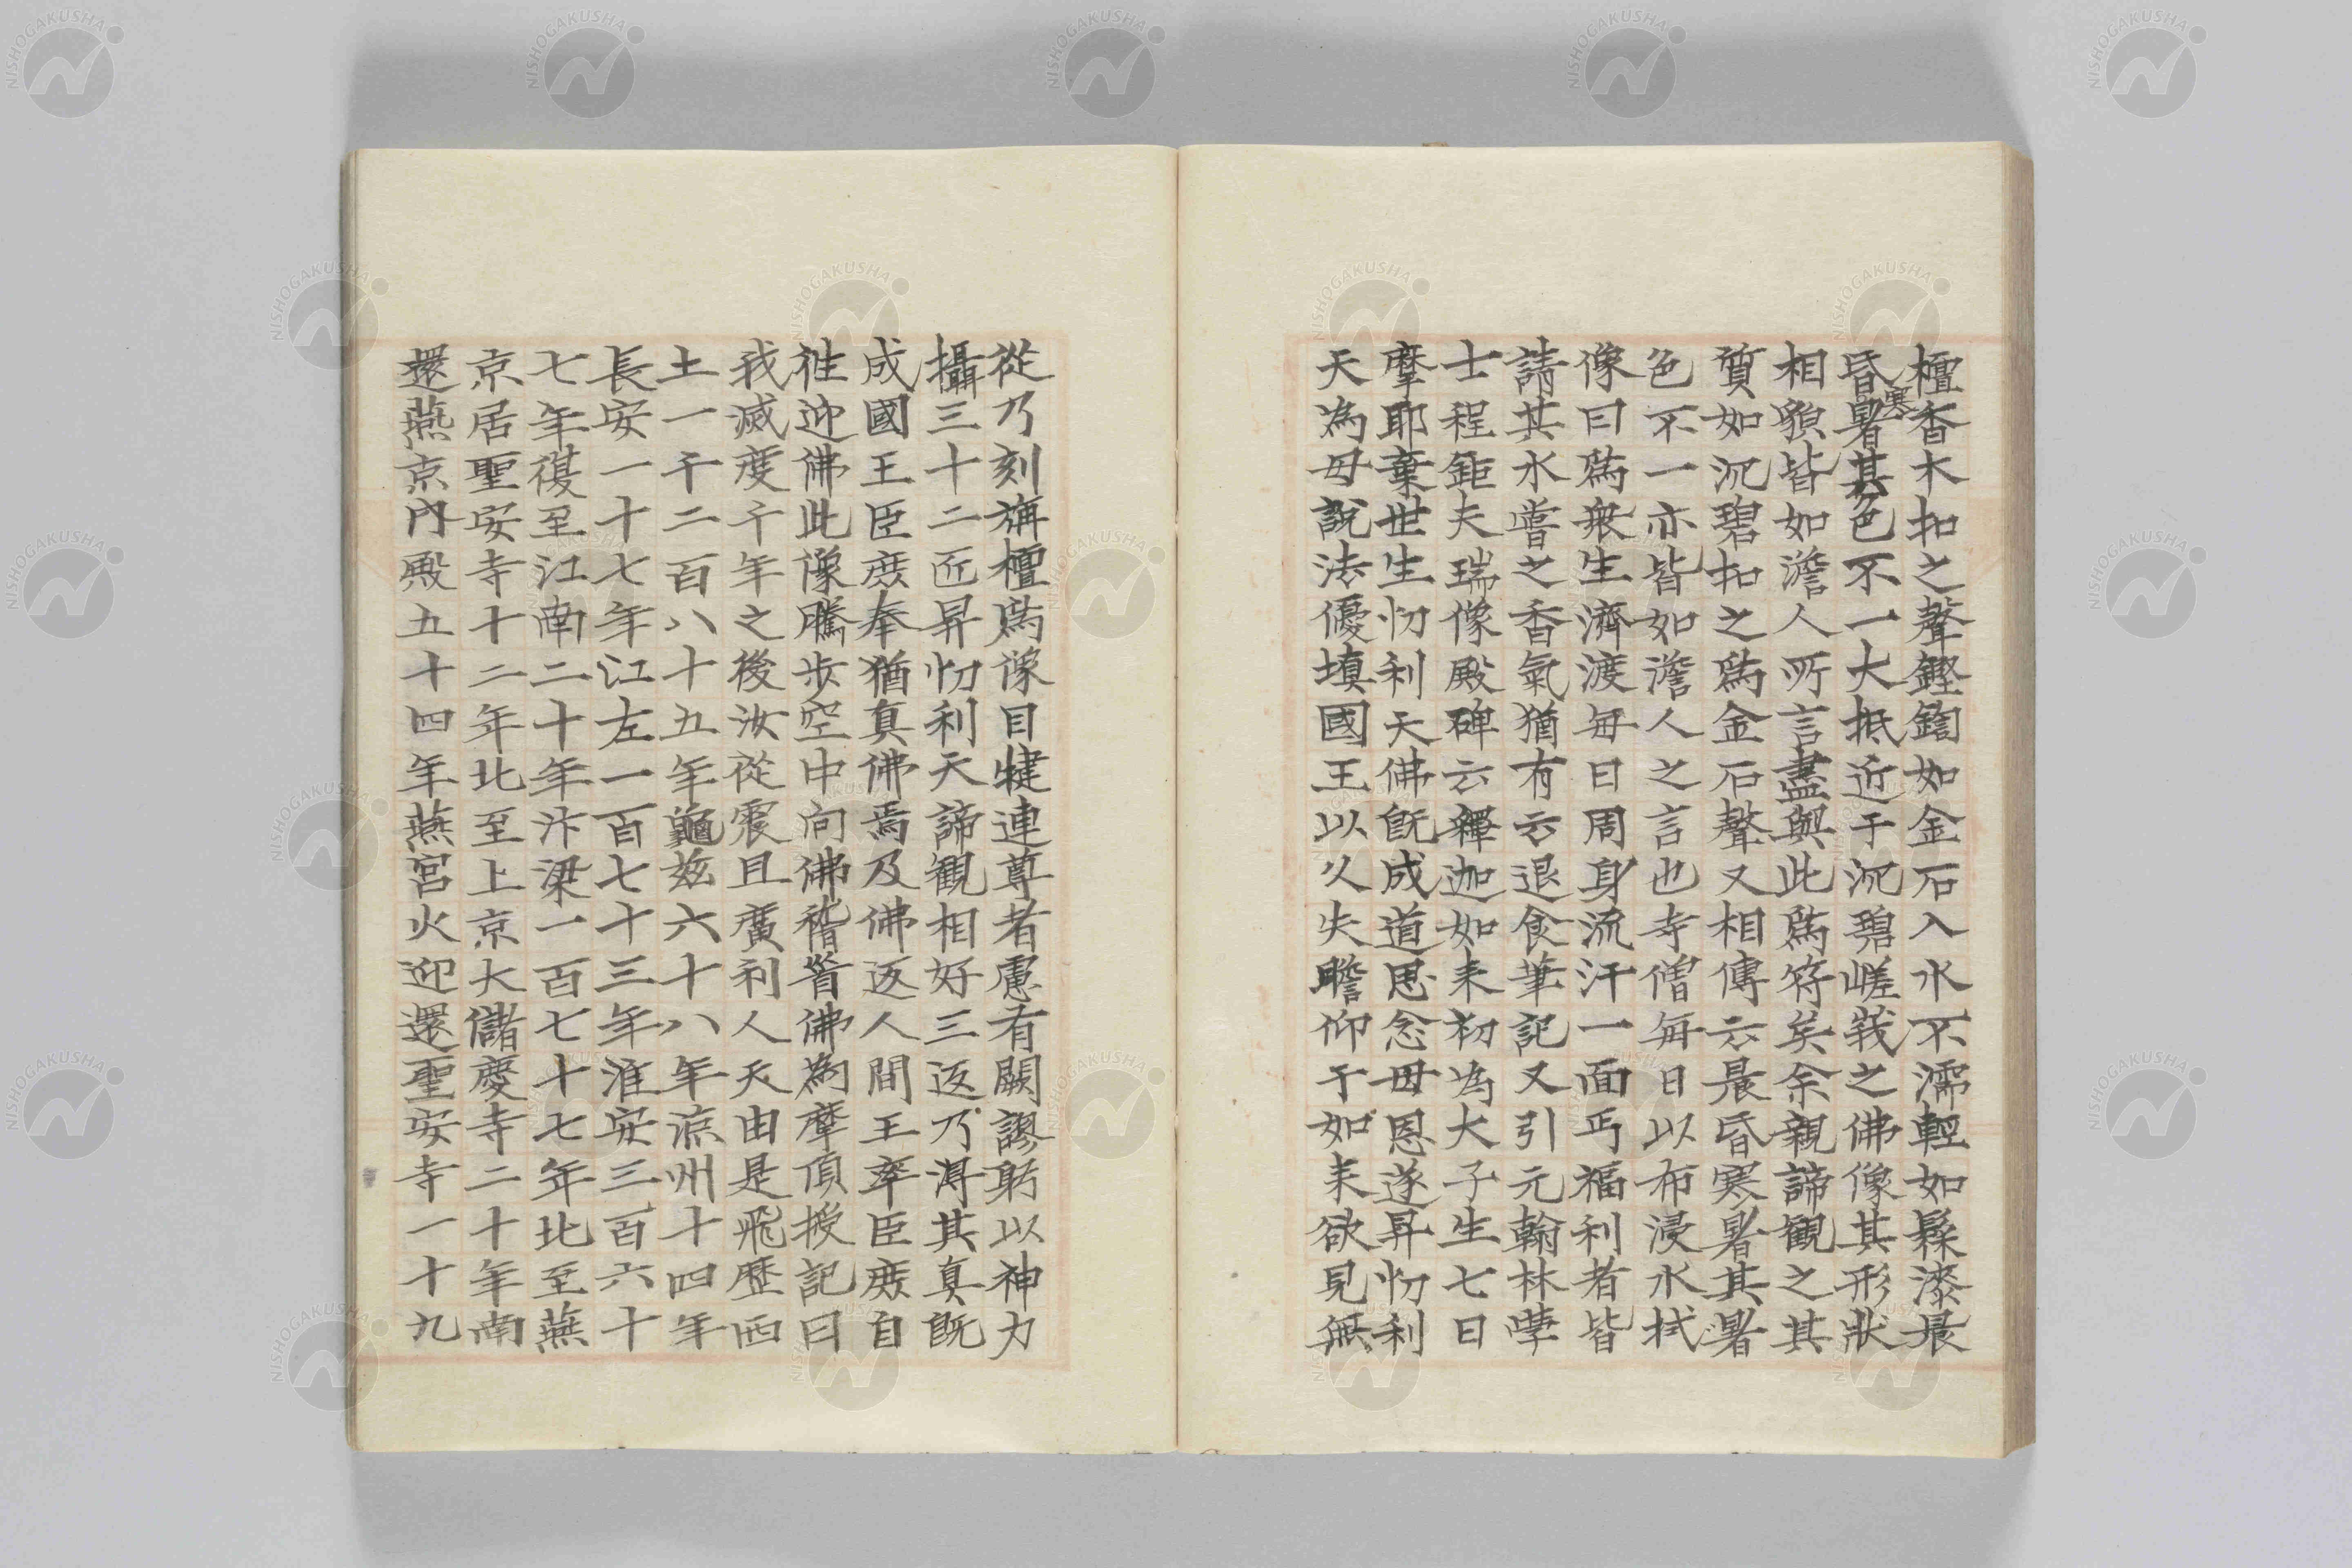 檀香木扣之聲鏗鍧如金石入水不濡輕如髹漆晨
昏寒暑其色不一大抵近于沉碧嵯峩之佛像其形狀
相貌皆如澹人所言盡與此爲符矣余親諦觀之其
質如沉碧扣之爲金石聲又相傳云晨昏寒暑其暑
色不一亦皆如澹人之言也寺僧每日以布浸水拭
像曰爲衆生濟渡每日周身流汗一面丐福利者皆
請其水嘗之香氣猶有云退食筆記又引元翰林學
士程鉅夫瑞像殿碑云釋迦如来初為大子生七日
摩耶棄世生忉利天佛旣成道思念母恩遂昇忉利
天為母說法優填國王以久失瞻仰于如来欲見無
從乃刻旃檀爲像目犍連尊者慮有闕謬躬以神力
攝三十二匠昇忉利天諦觀相好三返乃淂其真旣
成國王臣庶奉猶真佛焉及佛返人間王率臣庶自
徃迎佛此像騰歩空中向佛稽首佛為摩頂授記曰
我滅度千年之後汝從震旦廣利人天由是飛歷西
土一千二百八十五年龜兹六十八年涼州十四年
長安一十七年江左一百七十三年淮安三百六十
七年復至江南二十年汴梁一百七十七年北至燕
京居聖安寺十二年北至上京大儲慶寺二十年南
還燕京內殿五十四年燕宮火迎還聖安寺一十九
NISHOGAKUSHA